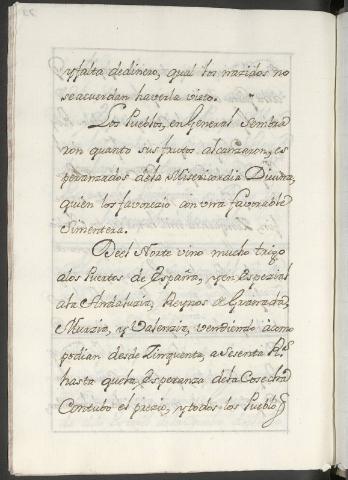 y falta de dinero, qual los nazidos no
se acuerdan haverla visto.
Los Pueblos, en General Sembra
ron quanto sus frutos alcanzaron, es
peranzados de la Misericardia Divina,
quien los favorezio con una favorable
Simentera.
Deel Norte vino mucho trigo
alos Puertos de España, y en Espezial
ala Andaluzia, Reynos de Granada,
Murzia, y Valenzia, vendiendo a como
podian desde Zinquenta, a Sesenta R.s
hasta que la Esperanza de la Cosecha
Contubo el prezio, y todos los Pueblos